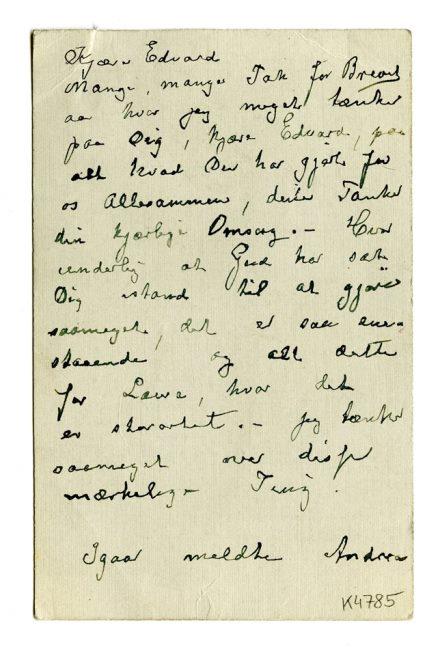 Kjære Edvard
Mange, mange Tak for Brevet
aa hvor jeg meget tænker
paa Dig, kjære Edvard, paa
alt hvad Du har gjort for
os Allesammen, deile Tanker
din kjærlige Omsorg. – Hvor
underlig at Gud har sat
Dig istand til at gjøre
saameget, det er saa ene-
staaende og alt dette
for Laura, hvor det
er storartet. – jeg tænker
saameget over disse
mærkelige Ting.
Igaar meldte Andrea
K4785